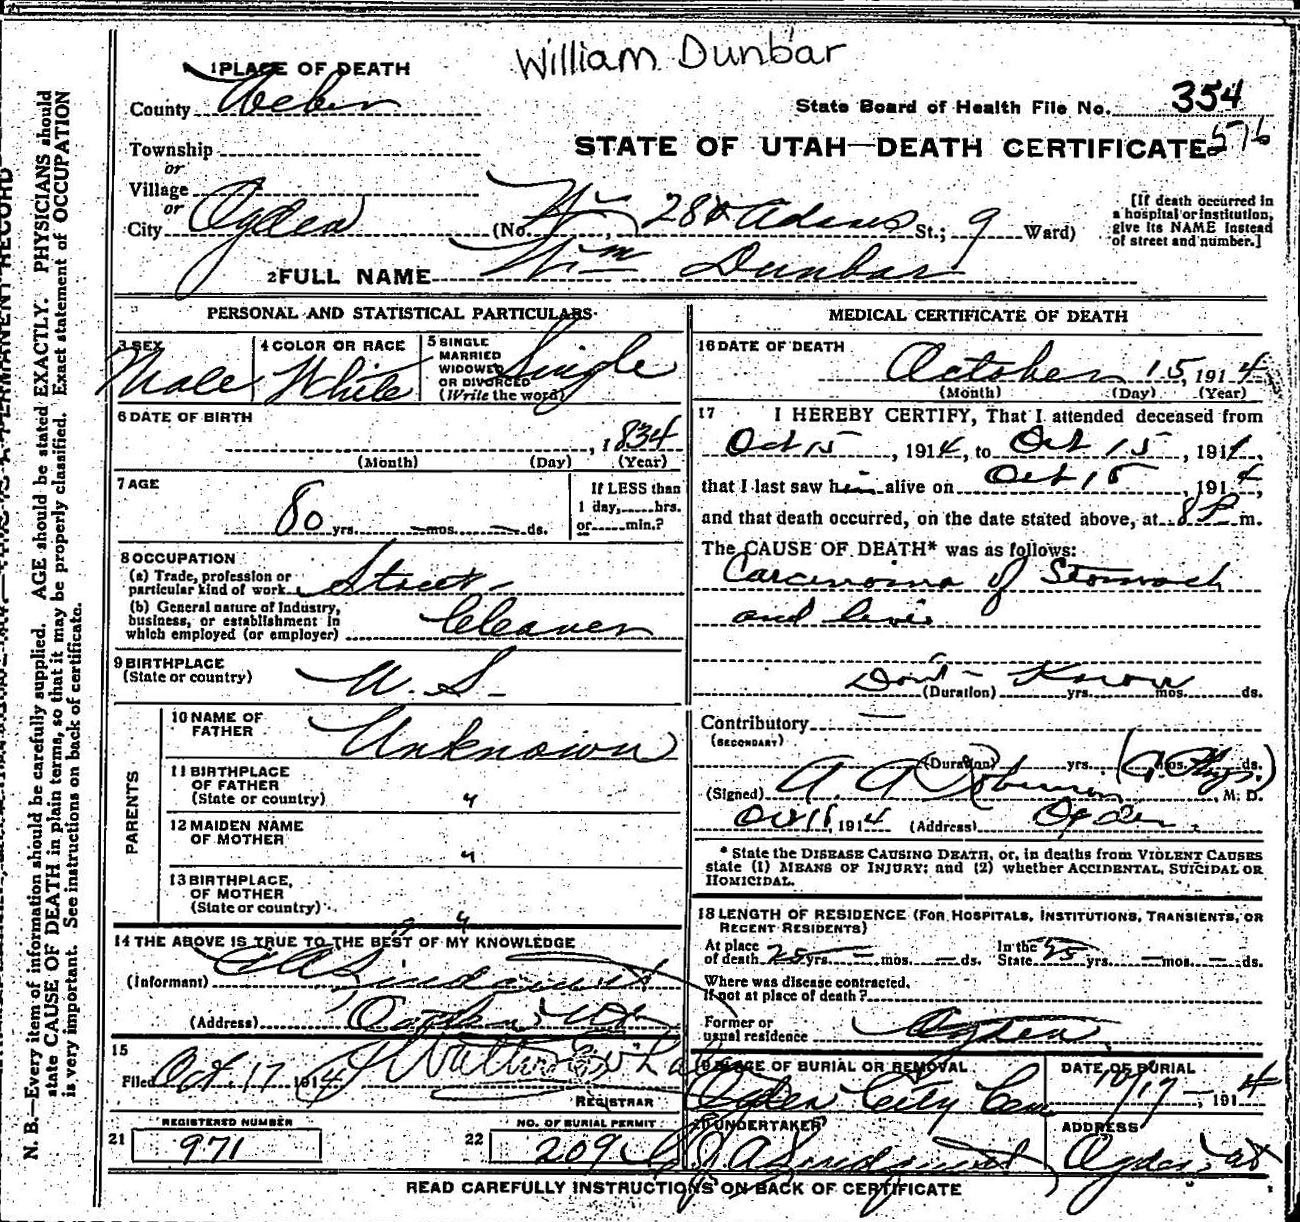 William Dunbar
1 PLACE OF DEATH
County Weber
State Board of Health File No. 354
Township
STATE OF UTAH—DEATH CERTIFICATE 576
or
Village
or
City Ogden (No. 28th Adams St.; 9 Ward)
[If death occurred in a hospital or institution, give its NAME instead of street and number.]
2 FULL NAME Wm Dunbar
PERSONAL AND STATISTICAL PARTICULARS
3 SEX Male
4 COLOR OR RACE White
5 SINGLE MARRIED WIDOWED OR DIVORCED (Write the word) Single
6 DATE OF BIRTH
, 1834
(Month) (Day) (Year)
7 AGE
80 yrs. — mos. — ds.
If LESS than 1 day, hrs. or min.?
8 OCCUPATION
(a) Trade, profession or particular kind of work Street
(b) General nature of Industry, business, or establishment in which employed (or employer) Cleaner
9 BIRTHPLACE
(State or country) U. S.
PARENTS
10 NAME OF FATHER Unknown
11 BIRTHPLACE OF FATHER (State or country) "
12 MAIDEN NAME OF MOTHER "
13 BIRTHPLACE, OF MOTHER (State or country) "
14 THE ABOVE IS TRUE TO THE BEST OF MY KNOWLEDGE
(Informant)
(Address) Ogden, Utah
15
Filed Oct. 17 1914
REGISTRAR
REGISTERED NUMBER
21 971
NO. OF BURIAL PERMIT
22 209
MEDICAL CERTIFICATE OF DEATH
16 DATE OF DEATH
October 15, 1914
(Month) (Day) (Year)
17 I HEREBY CERTIFY, That I attended deceased from
Oct 15, 1914, to Oct 15, 1914,
that I last saw him alive on Oct 15, 1914,
and that death occurred, on the date stated above, at 8 P m.
The CAUSE OF DEATH* was as follows:
Carcinoma of Stomach
and liver
Don't Know
(Duration) yrs. mos. ds.
Contributory —
(SECONDARY)
(Duration) yrs. mos. ds.
(Signed) A. A. Robinson, M. D.
(C. Phys.)
Oct 16, 1914 (Address) Ogden.
* State the DISEASE CAUSING DEATH, or, in deaths from VIOLENT CAUSES
state (1) MEANS OF INJURY; and (2) whether ACCIDENTAL, SUICIDAL OR
HOMICIDAL.
18 LENGTH OF RESIDENCE (FOR HOSPITALS, INSTITUTIONS, TRANSIENTS, OR
RECENT RESIDENTS)
At place of death 25 yrs. — mos. — ds. In the State yrs. — mos. — ds.
Where was disease contracted,
if not at place of death?
Former or
usual residence Ogden
19 PLACE OF BURIAL OR REMOVAL
Ogden City Cem
DATE OF BURIAL
10/17 1914
20 UNDERTAKER
ADDRESS
Ogden, Ut
READ CAREFULLY INSTRUCTIONS ON BACK OF CERTIFICATE
N. B.—Every item of information should be carefully supplied. AGE should be stated EXACTLY. PHYSICIANS should
state CAUSE OF DEATH in plain terms, so that it may be properly classified. Exact statement of OCCUPATION
is very important. See instructions on back of certificate.
PERMANENT RECORD